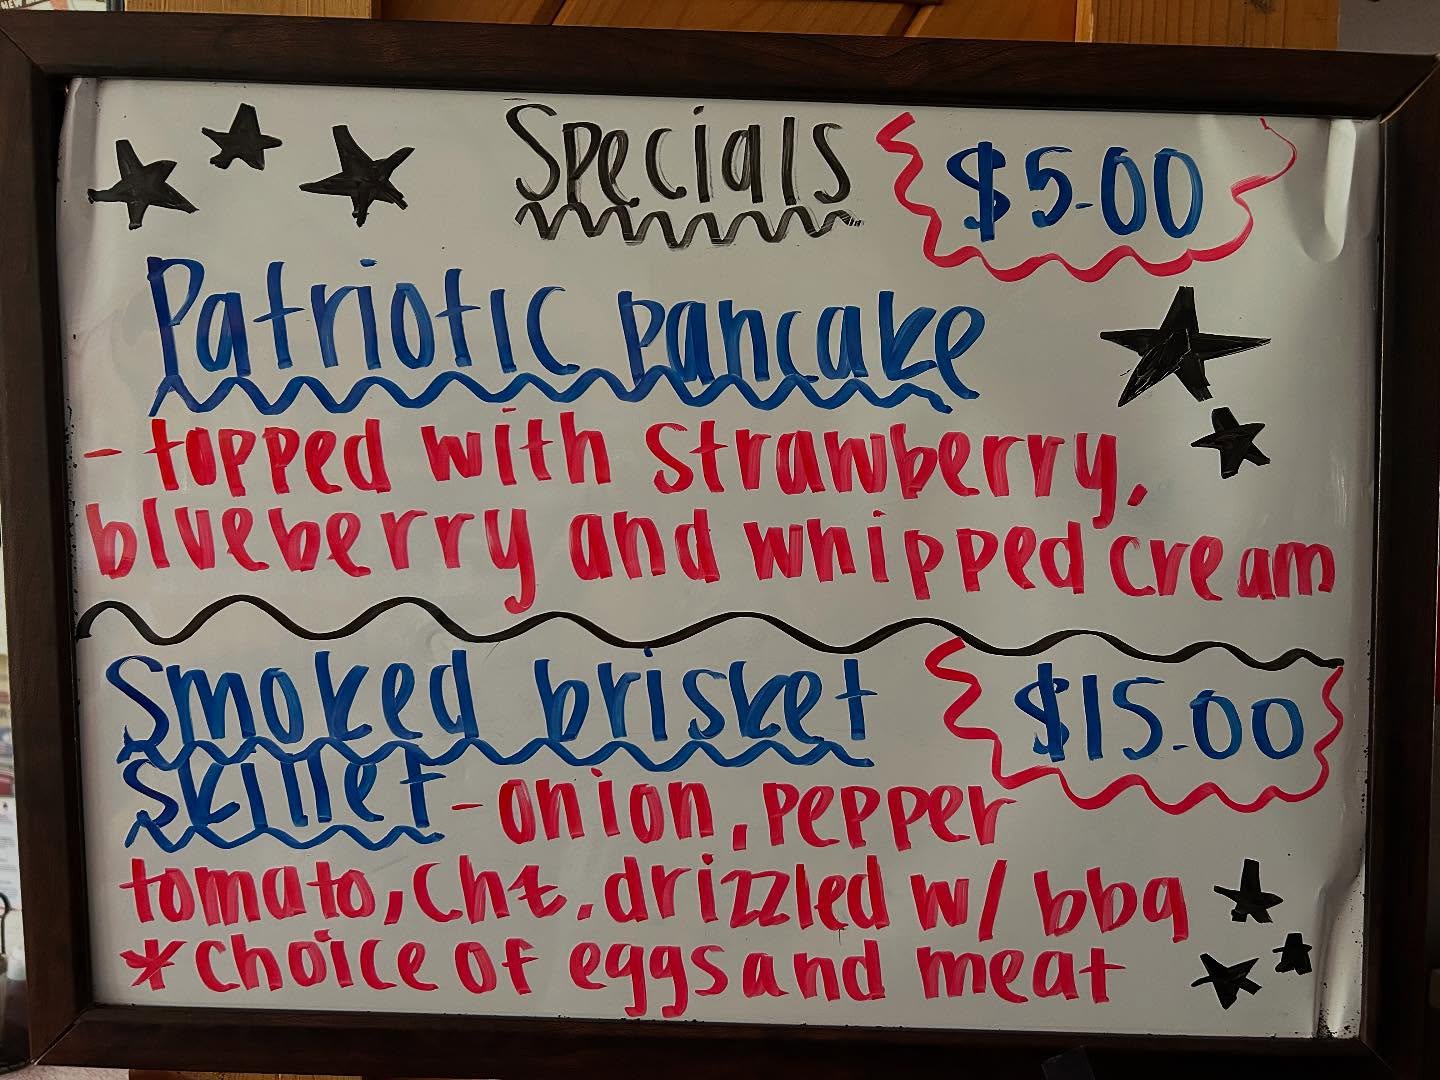 Specials $5.00
Patriotic pancake
- topped with strawberry,
blueberry and whipped cream
Smoked brisket $15.00
skillet - onion, pepper
tomato, cht. drizzled w/ bbq
*choice of eggs and meat